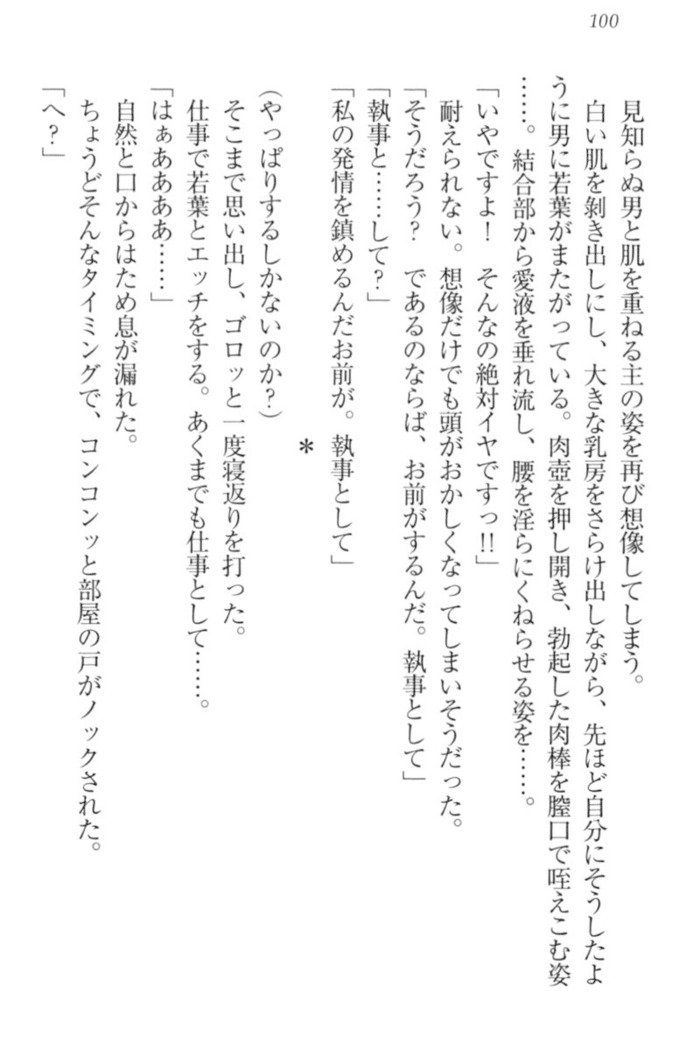 100
見知らぬ男と肌を重ねる主の姿を再び想像してしまう。
白い肌を剝き出しにし、大きな乳房をさらけ出しながら、先ほど自分にそうしたよ
うに男に若葉がまたがっている。肉壺を押し開き、勃起した肉棒を膣口で咥えこむ姿
……。結合部から愛液を垂れ流し、腰を淫らにくねらせる姿を……。
「いやですよ！　そんなの絶対イヤですっ!!」
耐えられない。想像だけでも頭がおかしくなってしまいそうだった。
「そうだろう？　であるのならば、お前がするんだ。執事として」
「執事と……して？」
「私の発情を鎮めるんだお前が。執事として」
＊
（やっぱりするしかないのか？）
そこまで思い出し、ゴロッと一度寝返りを打った。
仕事で若葉とエッチをする。あくまでも仕事として……。
「はぁああああ……」
自然と口からはため息が漏れた。
ちょうどそんなタイミングで、コンコンッと部屋の戸がノックされた。
「へ？」